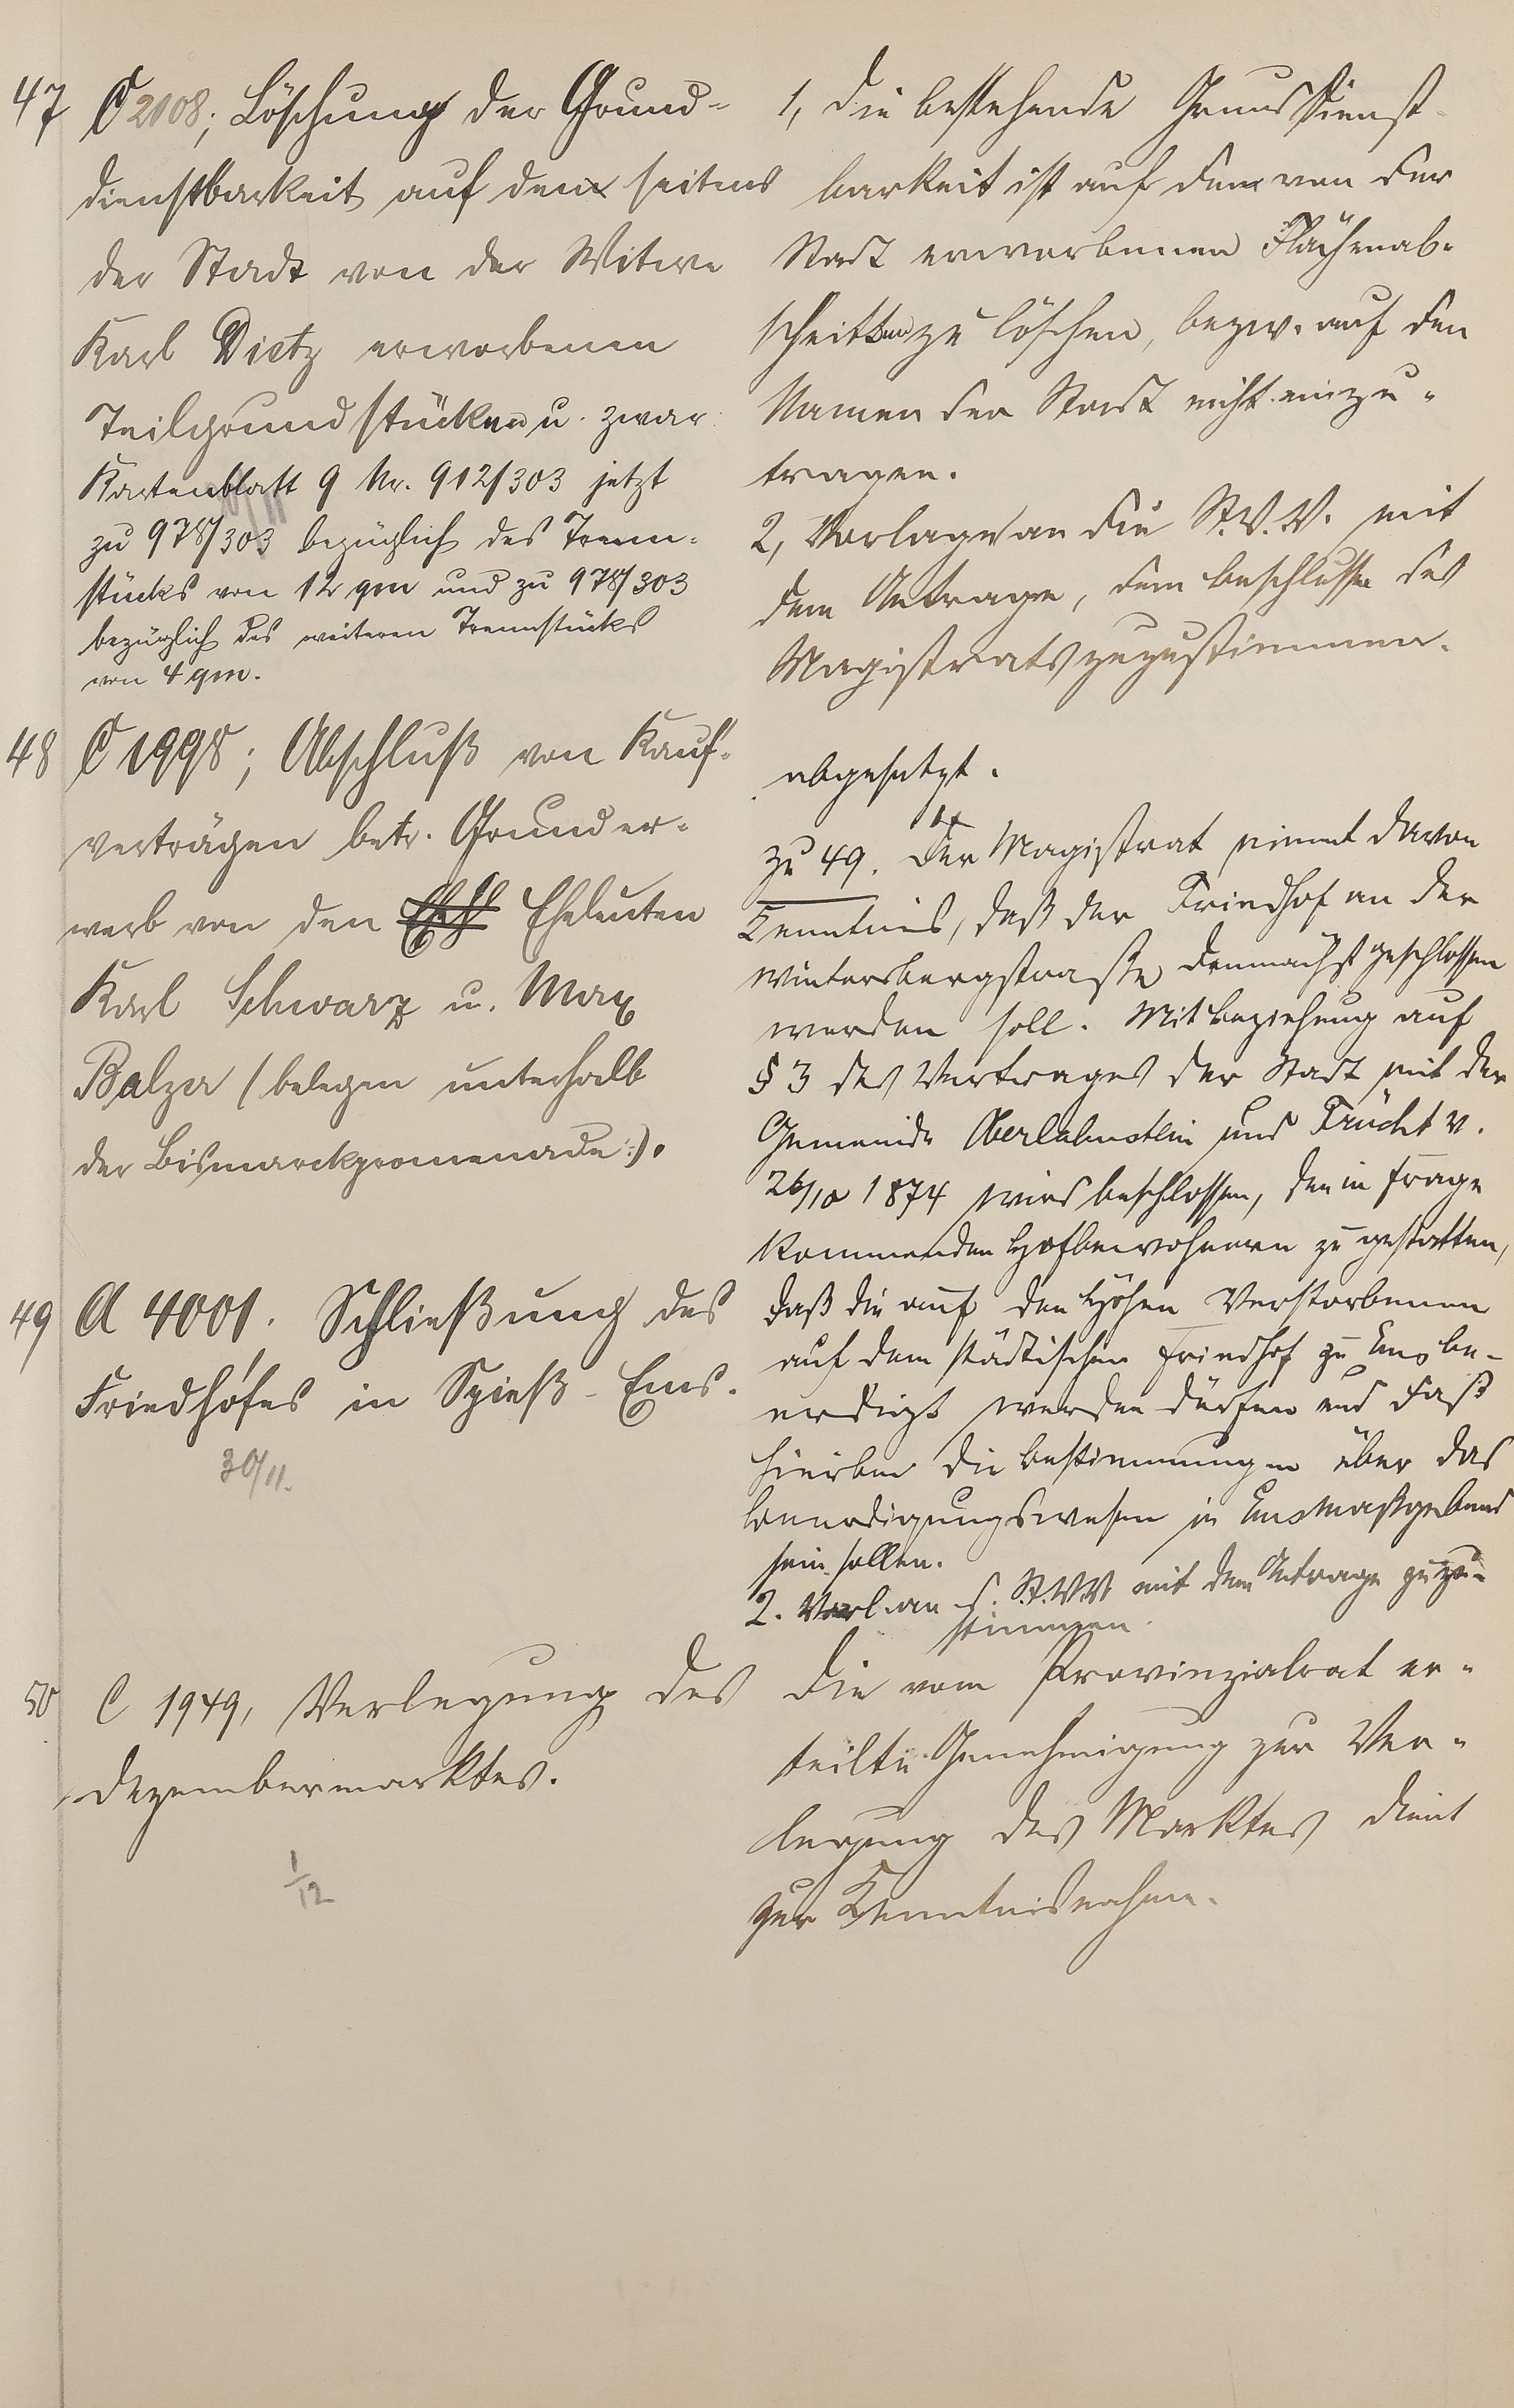 47 C 2108; Löschung der Grund-
dienstbarkeit auf den seitens
der Stadt von der Witwe
Karl Dietz erworbenen
Teilgrundstücken u. zwar
Kartenblatt 9 Nr. 912/303 jetzt
zu 978/303 bezüglich des Trenn-
stücks von 12 qm und zu 978/303
bezüglich des weiteren Trennstücks
von 4 qm.
1, Die bestehende Grunddienst-
barkeit ist auf den von der
Stadt erworbenen Flächenab-
schnitten zu löschen, bezw. auf den
Namen der Stadt nicht einzu-
tragen.
2, Vorlage an die St.V.V. mit
dem Antrage, dem Beschlusse des
Magistrats zuzustimmen.
48 C 1998; Abschluß von Kauf-
verträgen betr. Grunder-
werb von den Eheleuten
Karl Schwarz u. Max
Balzer (belegen unterhalb
der Bismarckpromenade:).
abgesetzt.
49 A 4001. Schließung des
Friedhofes in Spieß-Ems.
30/11.
zu 49. Der Magistrat nimmt davon
Kenntnis, daß der Friedhof an der
Wintersbergstraße demnächst geschlossen
werden soll. Mit Beziehung auf
§ 3 des Vertrages der Stadt mit der
Gemeinde Oberlahnstein und Frücht v.
26/10 1874 wird beschlossen, den in Frage
kommenden Hofbewohnern zu gestatten,
daß die auf den Höhen Verstorbenen
auf dem städtischen Friedhof zu Ems be-
erdigt werden dürfen und daß
hierbei die Bestimmungen über das
Beerdigungswesen in Ems maßgebend
sein sollen.
2. Vorl. an d. St.V.V. mit dem Antrage zuzu-
stimmen.
50 C 1949, Verlegung des
Dezembermarktes.
1/12
Die vom Provinzialrat er-
teilte Genehmigung zur Ver-
legung des Marktes dient
zur Kenntnisnahme.